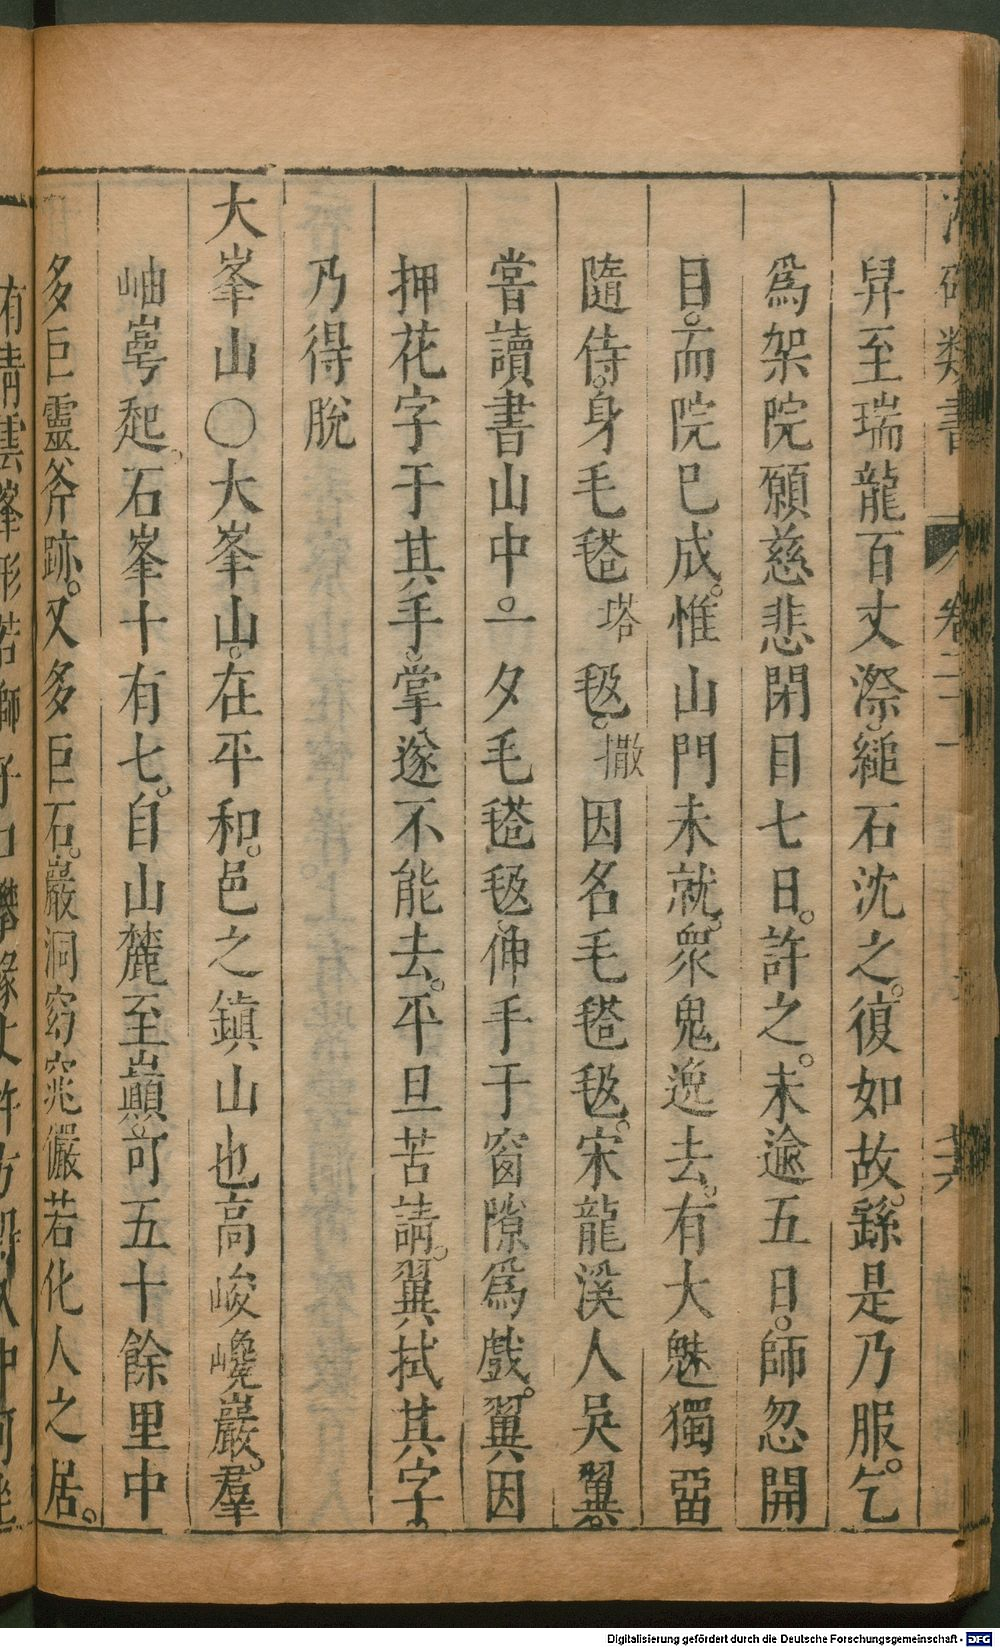 類書 卷二十一
舁至瑞龍百丈漈縋石沈之復如故繇是乃服乞
爲架院願慈悲閉目七日許之未逾五日師忽開
目而院已成惟山門未就衆鬼逸去有大魅獨留
隨侍身毛毿塔毶撒因名毛毿毶宋龍溪人吳翼
嘗讀書山中一夕毛毿毶伸手于窗隙爲戲翼因
押花字于其手掌遂不能去平旦苦請翼拭其字
乃得脫
大峯山○大峯山在平和邑之鎮山也高峻巉巖羣
岫崿起石峯十有七自山麓至巔可五十餘里中
多巨靈斧跡又多巨石巖洞窈窕儼若化人之居
Digitalisierung gefördert durch die Deutsche Forschungsgemeinschaft - DFG